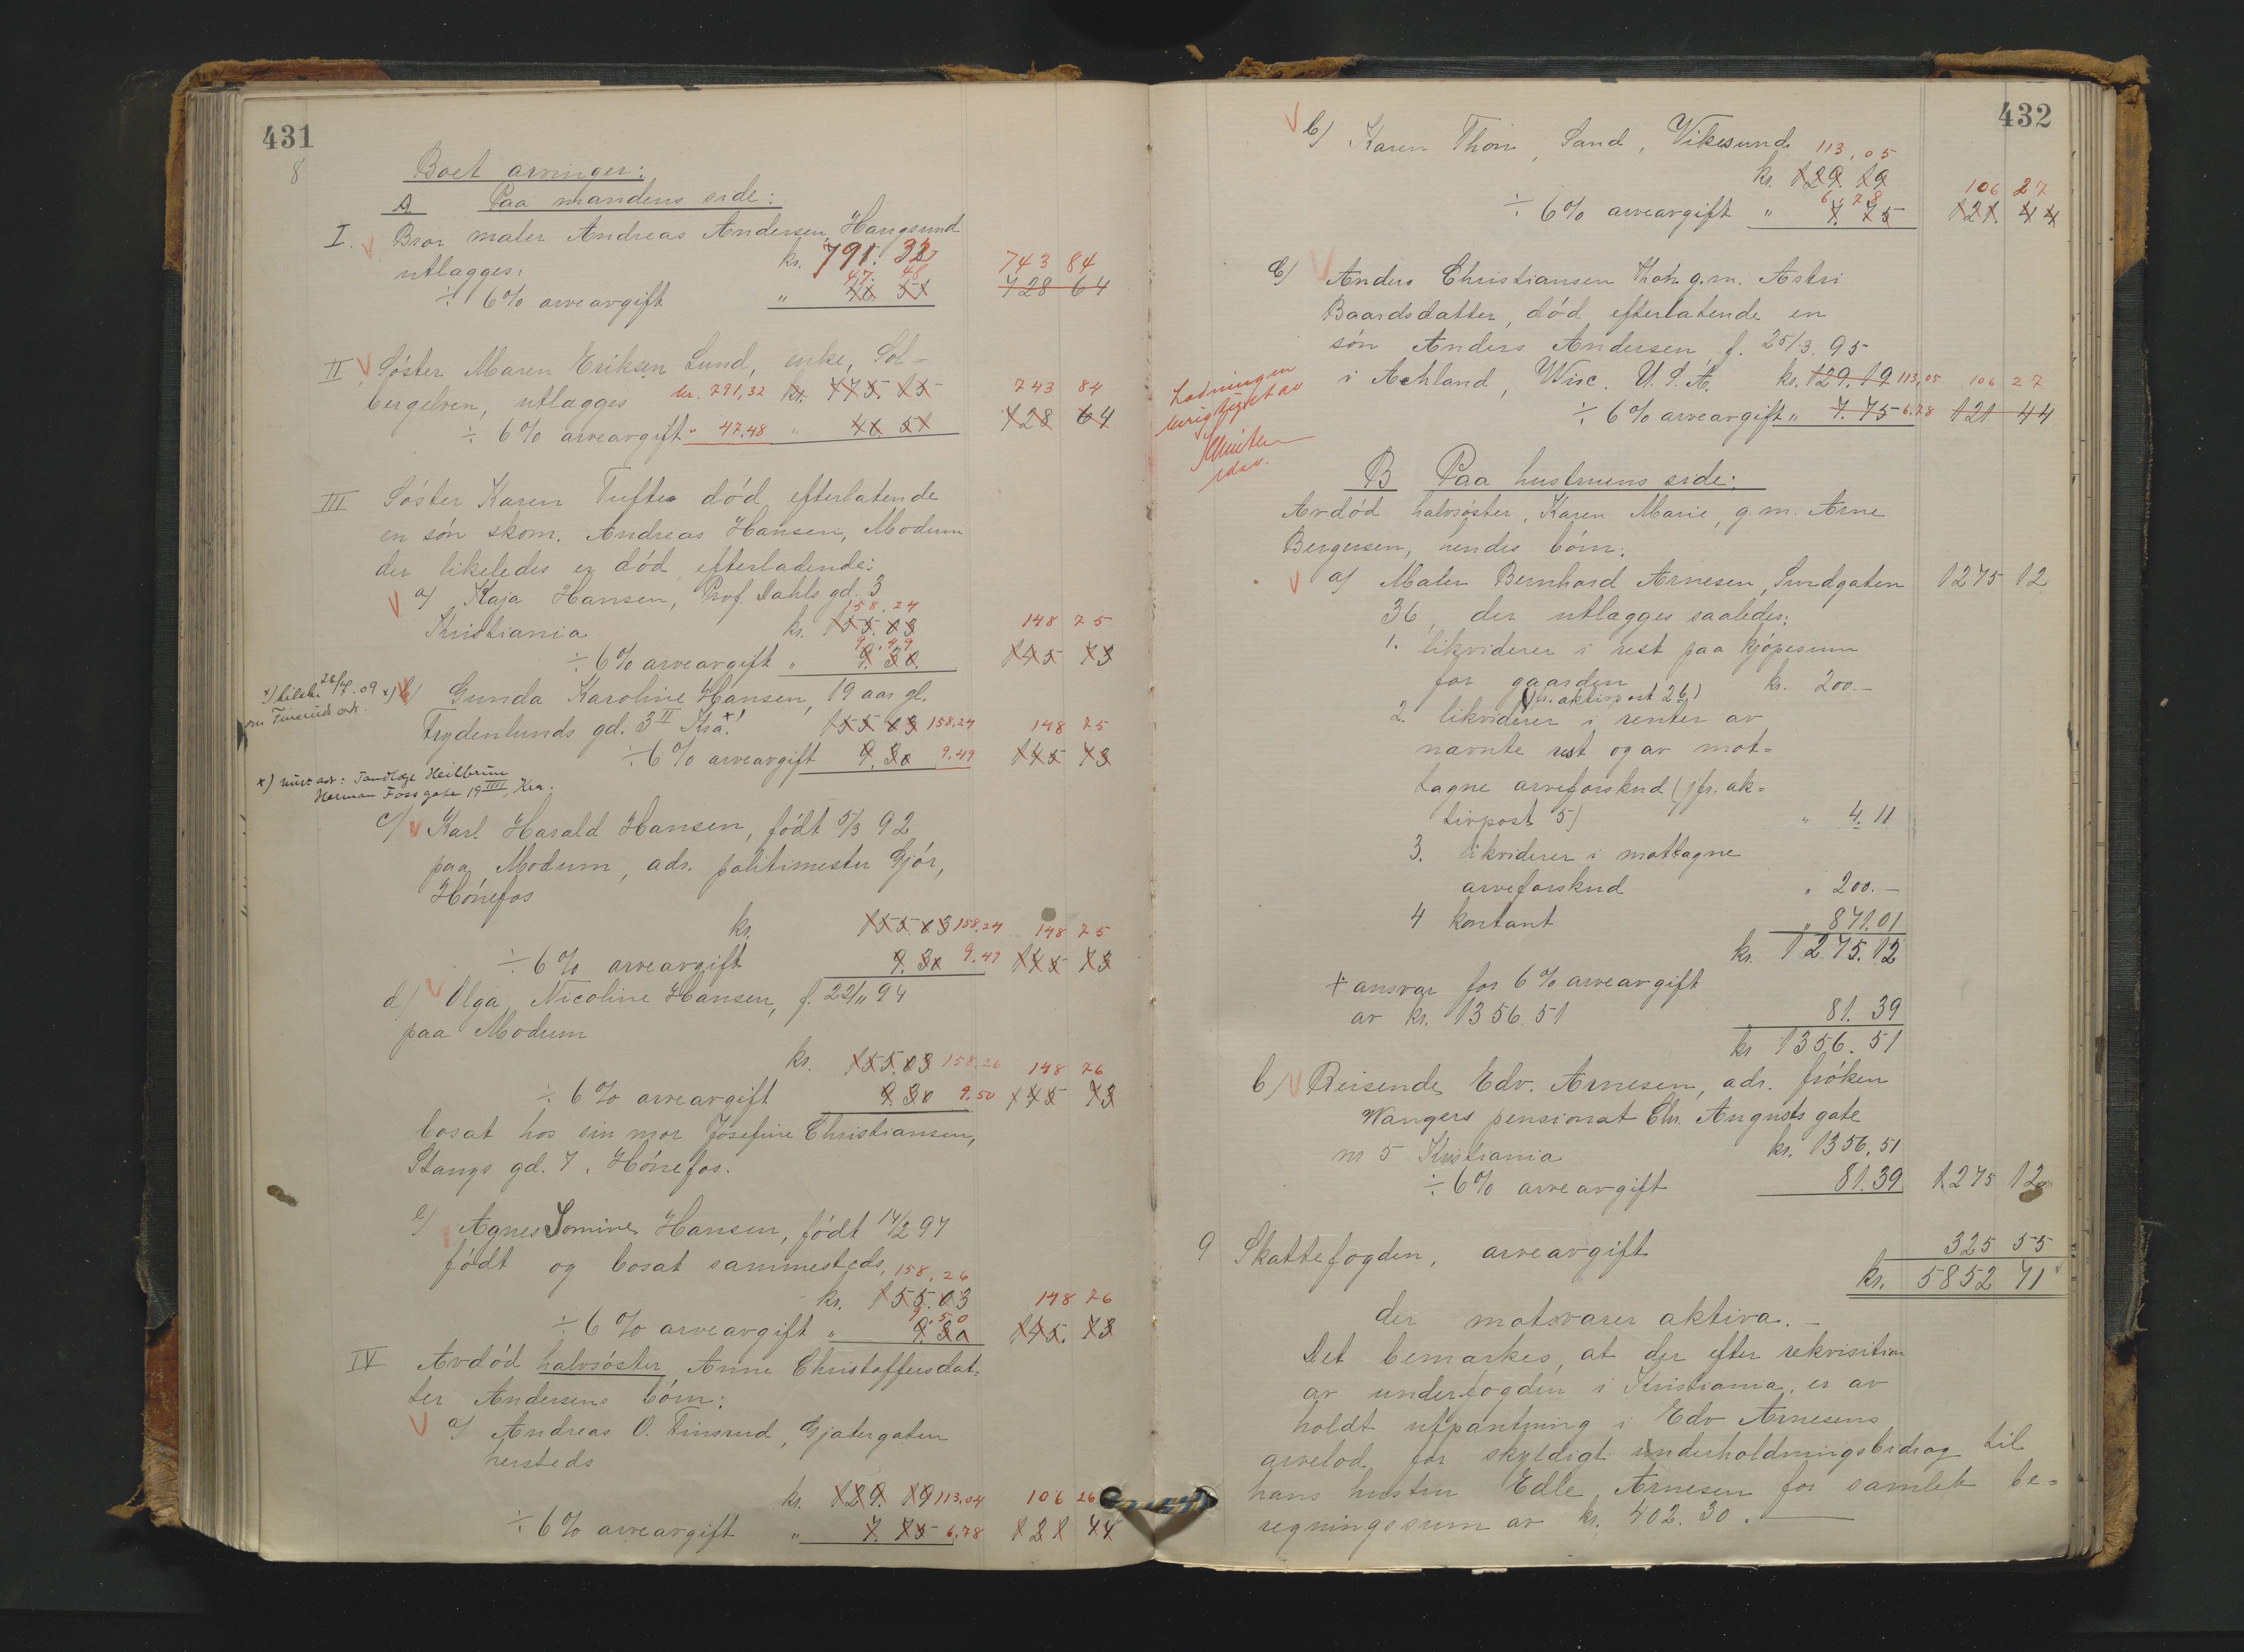 431
8
Boet arvinger:
A Paa mandens side:
I. Bror maler Andreas Andersen, Haugsund
utlægges: kr. 791. 32
47. 48 743 84
÷ 6% arveavgift " 46 51 728 64
II Søster Maren Eriksen Lund, enke, Sol-
bergelven, utlægges kr. 791,32 kr. 775. 15 743 84
÷ 6% arveavgift " 47.48 " 46 51 728 64
III Søster Karen Tufte død efterlatende
en søn skom. Andreas Hansen, Modum
der likeledes er død, efterladende:
a) Kaja Hansen, Prof. Dahls gd. 3
158,24
Kristiania kr. 155.03 148 75
9,49
÷ 6% arveavgift " 9.30 145 73
x) b) Gunda Karoline Hansen, 19 aar gl.
Frydenlunds gd. 3 II Kra. x) 155 03 158,24 148 75
÷ 6% arveavgift 9.30 9.49 145 73
x) nuv. adr: Tandlæge Heilbrun
Herman Foss gate 19 IIII, Kra.
c) Karl Harald Hansen, født 5/3 92
paa Modum, adr. politimester Gjør,
Hønefos
kr. 155.03 158,24 148 75
÷ 6% arveavgift 9.30 9.49 145 73
d) Olga Nicoline Hansen, f. 22/11 94
paa Modum
kr. 155.03 158,26 148 76
÷ 6% arveavgift 9.30 9.50 145 73
bosat hos sin mor Josefine Christiansen,
Stangs gd. 7, Hønefos.
e) Agnes Jomine Hansen, født 14/2 97
født og bosat sammesteds,
158,26
kr. 155.03 148 76
9.50
÷ 6% arveavgift " 9.30 145. 73
IV Avdød halvsøster Anne Christoffersdat-
ter Andersens børn:
a) Andreas O. Finsrud, Gjætergaten
hersteds
kr. 129. 19 113,04 106 26
÷ 6% arveavgift " 7. 75 6,78 121 44
432
b) Karen Thon, Sand, Vikesund
113,05
kr. 129. 19
6,78 106 27
÷ 6% arveavgift " 7. 75 121. 44
c) Anders Christiansen Thon g.m. Astri
Baardsdatter, død efterlatende en
søn Anders Andersen f. 25/3. 95
i Achland, Wisc. U.S.A. kr. 129.19 113,05 106 27
÷ 6% arveavgift " 7.75 6,78 121 44
B Paa hustruens side:
Avdød halvsøster, Karen Marie, g.m. Arne
Bergersen, hendes børn:
a) Maler Bernhard Arnesen, Sundgaten 1275 12
36, der utlægges saaledes:
1. likviderer i rest paa kjøpesum
for gaarden kr. 200.-
(jfr. aktivpost 2 b)
2. likviderer i renter av
nævnte rest og av mot-
tagne arveforskud (jfr. ak-
tivpost 5) " 4. 11
3. likviderer i mottagne
arveforskud " 200.-
4 kontant " 871.01
kr. 1275.12
+ ansvar for 6% arveavgift
av kr. 1356.51 81. 39
kr 1356. 51
b) Reisende Edv. Arnesen, adr. frøken
Wangers pensionat Chr. Augusts gate
nr 5 Kristiania kr. 1356,51
÷ 6% arveavgift 81.39 1275 12
9 Skattefogden, arveavgift 325 55
kr. 5852 71
der motsvarer aktiva.-
Det bemærkes, at der efter rekvisition
av underfogden i Kristiania, er av
holdt utpantning i Edv Arnesens
arvelod for skyldigt underholdningsbidrag til
hans hustru Edle Arnesen for samlet be-
regningssum av kr. 402.30.